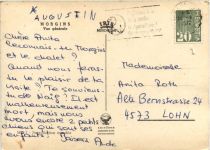 * AUGUSTIN
MORGINS
Vue générale
Chère Anita
Reconnais-tu Morgins
et le chalet ?
Quand nous feras-
tu le plaisir de ta
visite ? Te souviens-
tu de Naïf ? Il est
malheureusement
mort, mais nous
avons encore 2 petits
chiens qui sont les
Mademoiselle
Anita Roth
Alte Bernstrasse 24
4573 LOHN
20